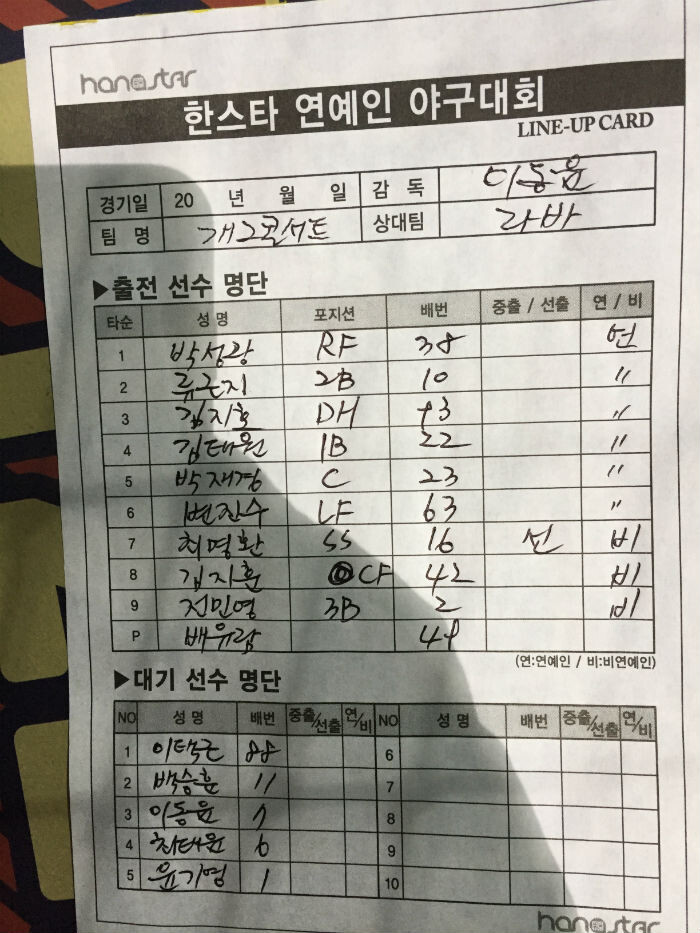 hanostar
한스타 연예인 야구대회
LINE-UP CARD
경기일 20 년 월 일 감 독 이동윤
팀 명 개그콘서트 상대팀 라바
▶출전 선수 명단
타순 성 명 포지션 배번 중출 / 선출 연 / 비
1 박성광 RF 38 연
2 류근지 2B 10 〃
3 김지호 DH 93 〃
4 김태원 1B 22 〃
5 박재경 C 23 〃
6 변진수 LF 63 〃
7 최명환 SS 16 선 비
8 김지훈 CF 42 비
9 전민영 3B 2 비
P 배유람 49
(연:연예인 / 비:비연예인)
▶대기 선수 명단
NO 성 명 배번 중출/선출 연/비 NO 성 명 배번 중출/선출 연/비
1 이택근 88 6
2 박승훈 11 7
3 이동윤 7 8
4 최태윤 6 9
5 윤기영 1 10
hanostar